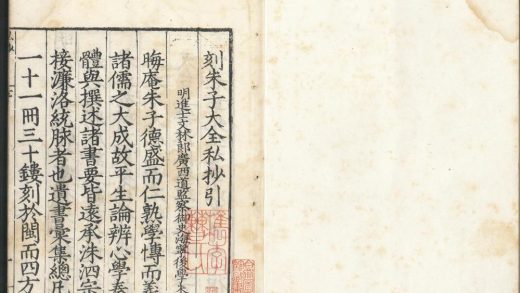 刻朱子大全私抄引
明進士文林郎廣西道監察御史海寧後學
晦庵朱子德盛而仁熟學博而義
諸儒之大成故平生論辨心學奏
體與撰述諸書要皆遠承洙泗宗
接濂洛統脉者也遺書彙集總凡
一十一冊三十鏤刻於閩而四方